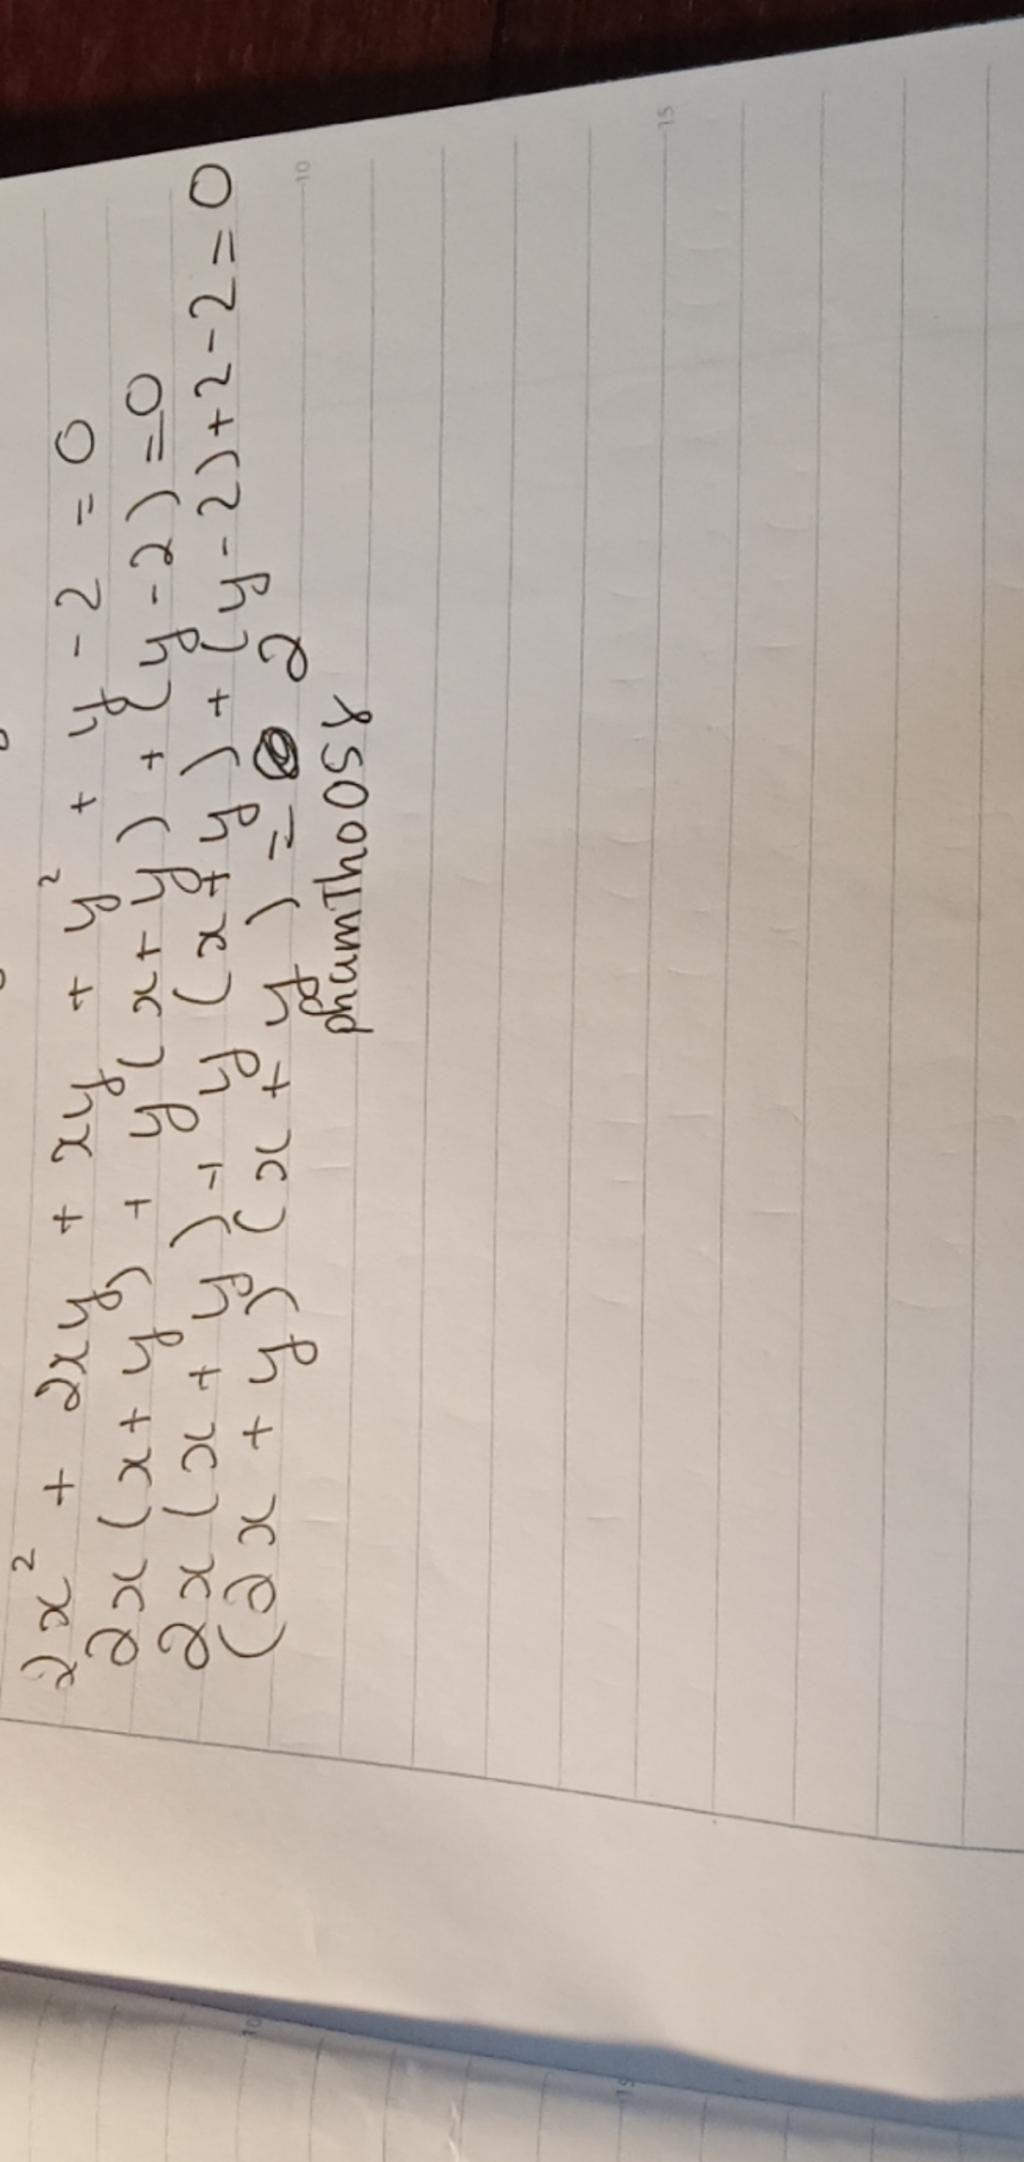 2x² + 2xy + xy + y² + y - 2 = 0
2x(x+y) + y(x+y) + (y-2) = 0
2x(x+y) + y(x+y) + (y-2)+2-2=0
(2x+y)(x+y) = 2
phamTho058
10
15
10
15